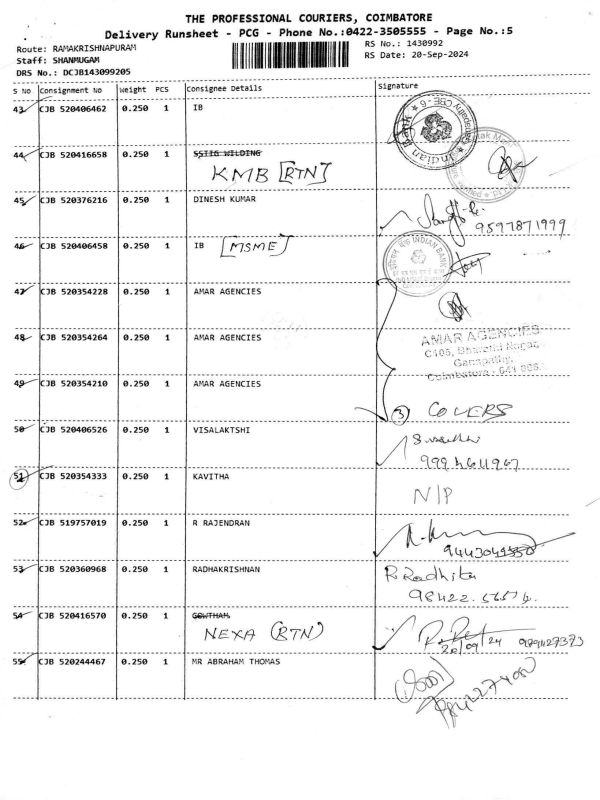 THE PROFESSIONAL COURIERS, COIMBATORE
Delivery Runsheet - PCG - Phone No.:0422-3505555 - Page No.:5
Route: RAMAKRISHNAPURAM
RS No.: 1430992
Staff: SHANMUGAM
RS Date: 20-Sep-2024
DRS No.: DCJB143099205
S No Consignment No Weight PCS Consignee Details Signature
43 CJB 520406462 0.250 1 IB
44 CJB 520416658 0.250 1 SSIIG WILDING
KMB [RTN]
45 CJB 520376216 0.250 1 DINESH KUMAR
9597871999
46 CJB 520406458 0.250 1 IB [MSME]
INDIAN BANK
47 CJB 520354228 0.250 1 AMAR AGENCIES
48 CJB 520354264 0.250 1 AMAR AGENCIES
AMAR AGENCIES
C105, Bharathi Nagar,
Ganapathy,
Coimbatore - 641 006.
49 CJB 520354210 0.250 1 AMAR AGENCIES
3 COVERS
50 CJB 520406526 0.250 1 VISALAKTSHI
51 CJB 520354333 0.250 1 KAVITHA
N/P
52 CJB 519757019 0.250 1 R RAJENDRAN
53 CJB 520360968 0.250 1 RADHAKRISHNAN
R. Radhika
54 CJB 520416570 0.250 1 GOWTHAM
NEXA (RTN)
20/09/24
55 CJB 520244467 0.250 1 MR ABRAHAM THOMAS